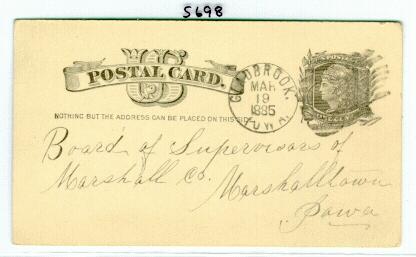 5698
US
POSTAL CARD.
NOTHING BUT THE ADDRESS CAN BE PLACED ON THIS SIDE.
GLADBROOK,
MAR
19
1885
IOWA.
Board of Supervisors of
Marshall Co. Marshalltown
Iowa